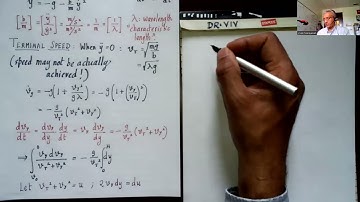 ÿ = -g - k/m ẏ²
[k/m] = [m/s²/m²/s²] = 1/m = [1/λ] λ: wavelength
characteristic length"
TERMINAL SPEED: When ÿ=0 : v_T = √(mg/b)
(speed may not be actually achieved!) = √(λg)
v̇_y = -g(1 + v_y²/gλ) = -g(1 + (v_y/v_T)²)
= -g/v_T² (v_T² + v_y²)
dv_y/dt = dv_y/dy dy/dt = v_y dv_y/dy = -g/v_T² (v_T² + v_y²)
⇒ ∫ v_y dv_y / (v_T² + v_y²) = -g/v_T² ∫₀ᴴ dy
Let v_T² + v_y² = u ; 2v_y dy = du
DR·VIV